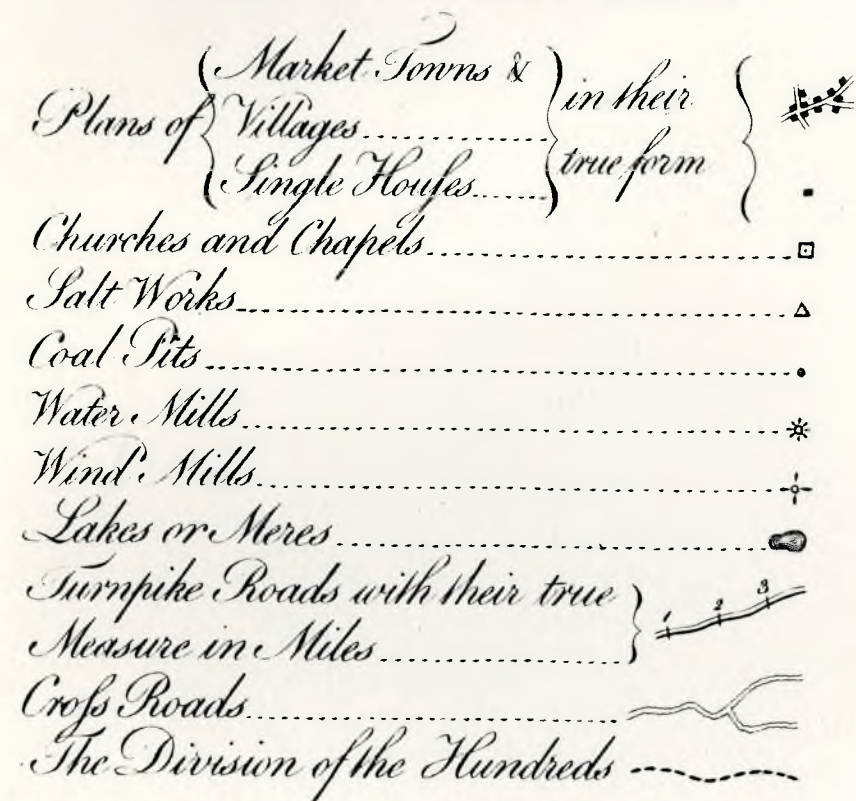 Market Towns &
Plans of Villages in their
Single Houſes true form
Churches and Chapels
Salt Works
Coal Pits
Water Mills
Wind Mills
Lakes or Meres
Turnpike Roads with their true
Measure in Miles 1 2 3
Croſs Roads
The Division of the Hundreds